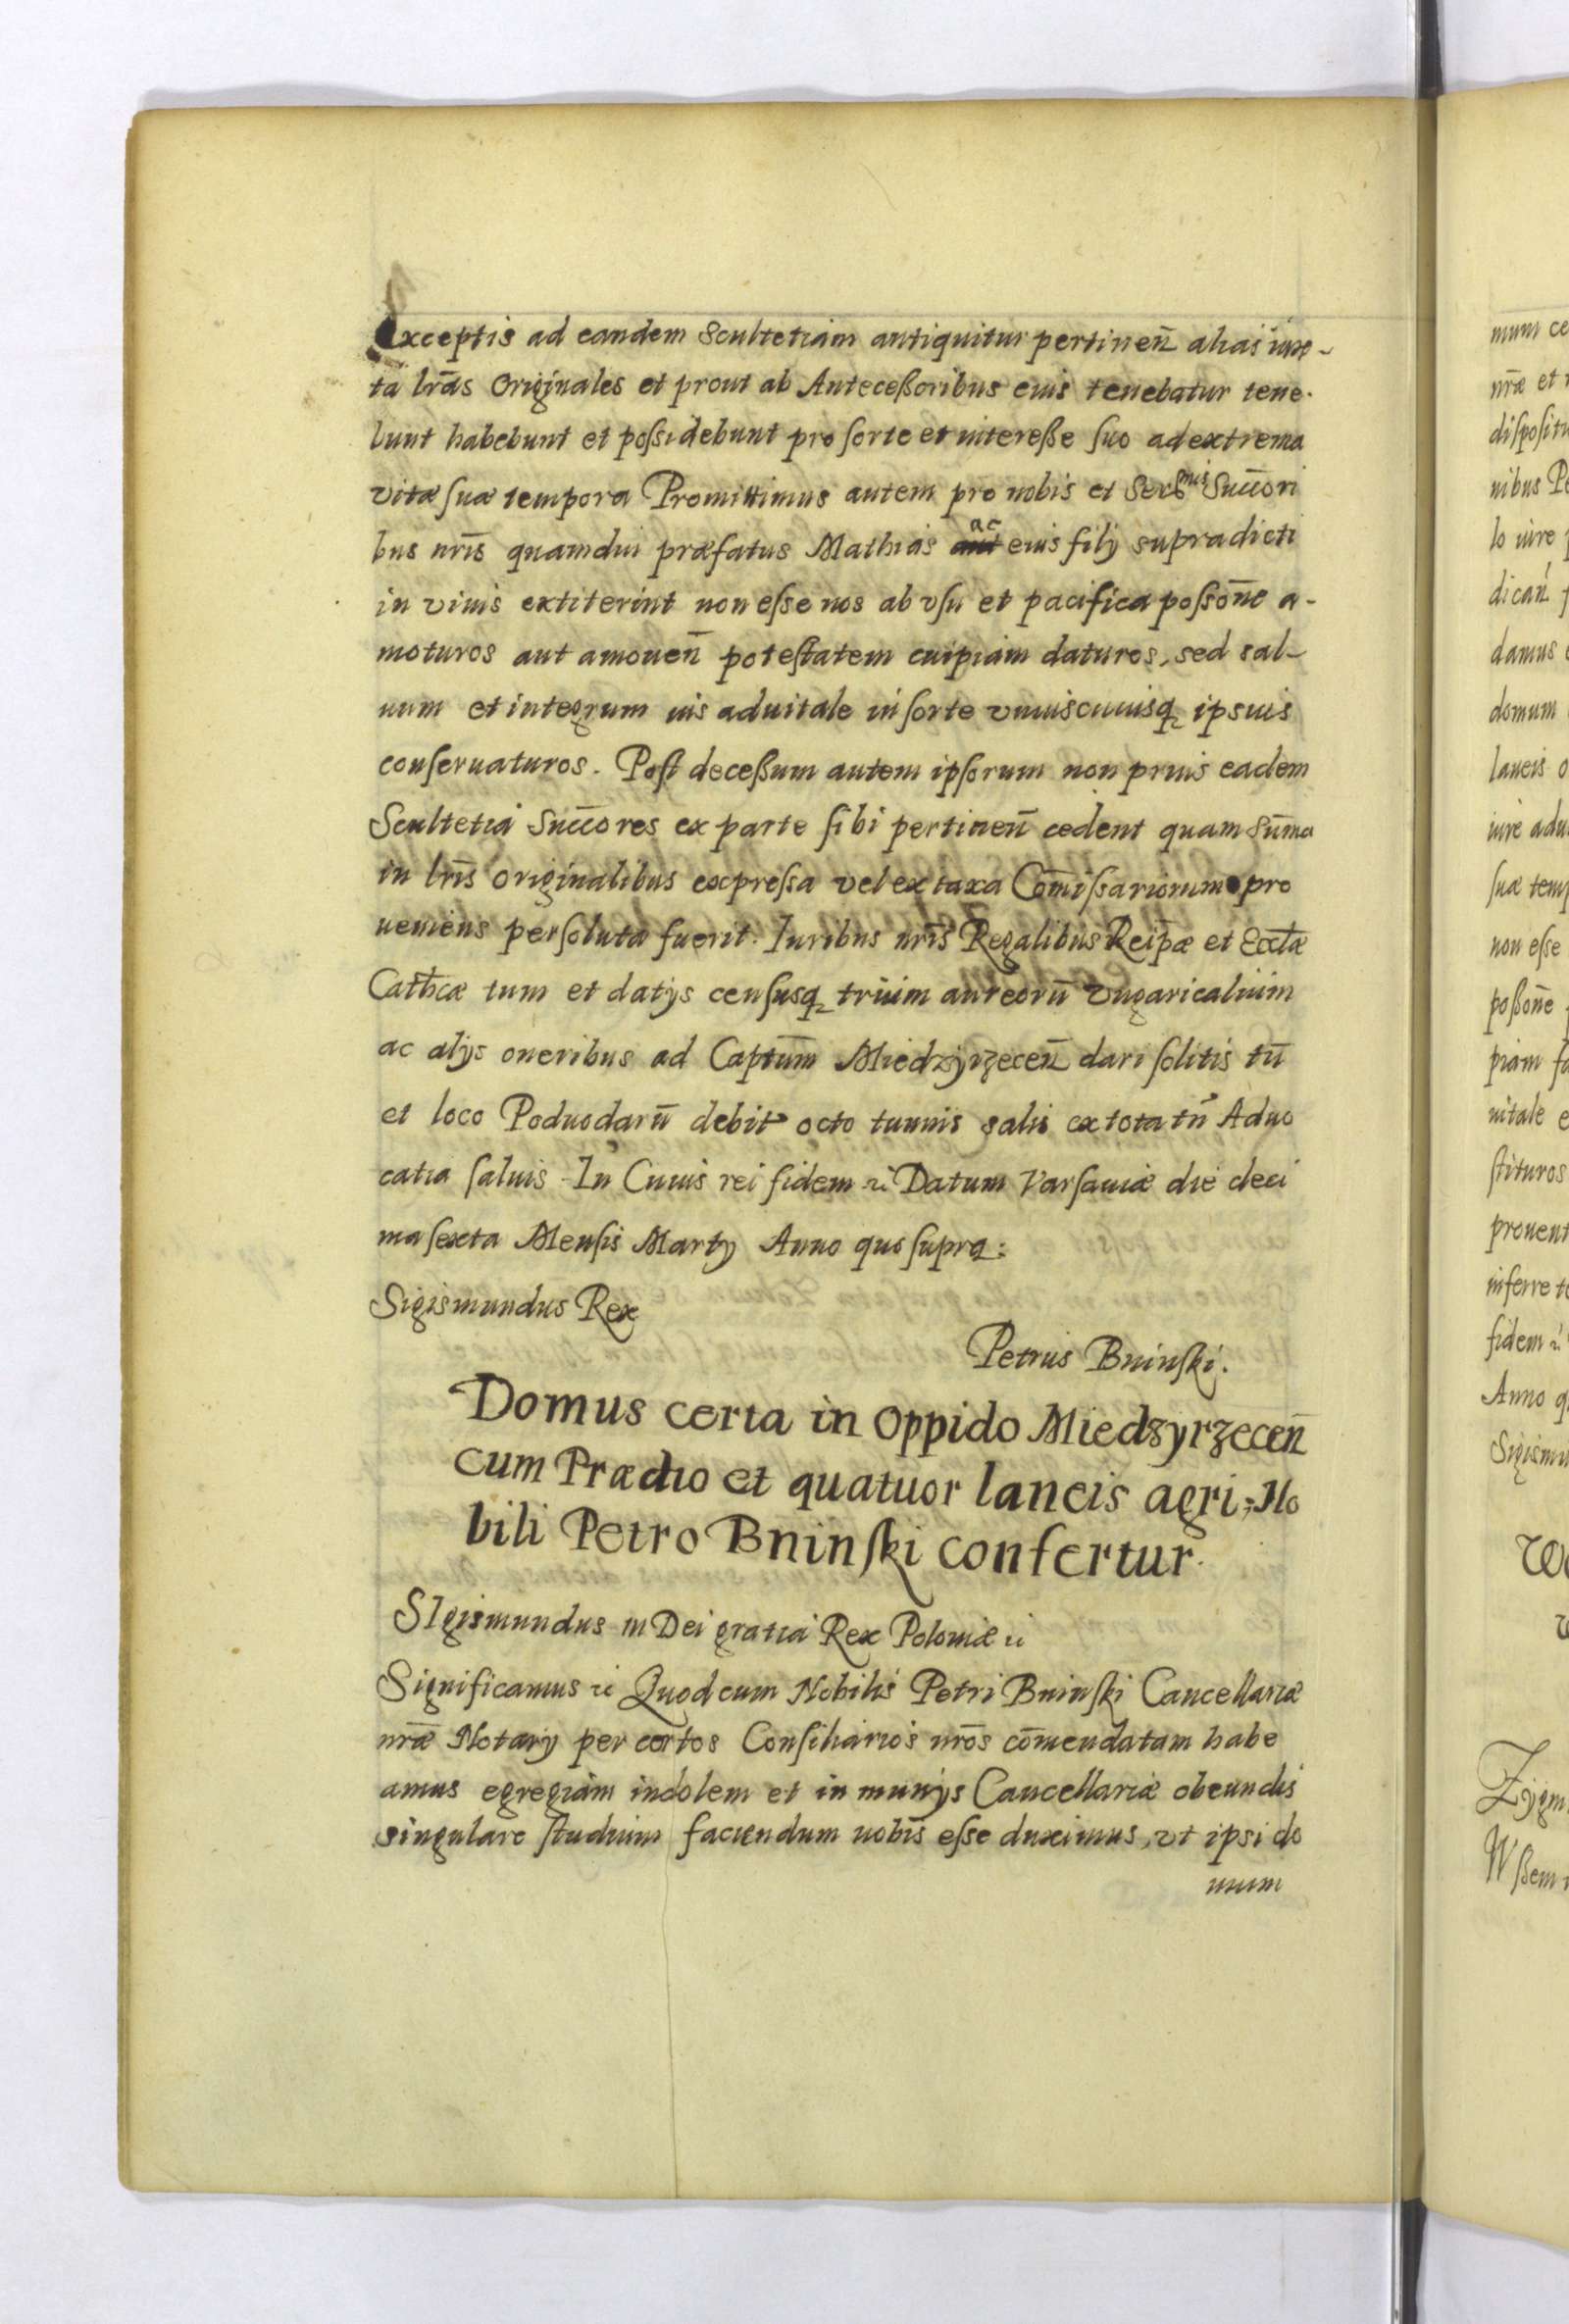 Exceptis ad eandem Scultetiam antiquitus pertinen̄ alias iux-
ta lr̄as Originales et prout ab Antecessoribus eius tenebatur tene-
bunt habebunt et possidebunt pro sorte et interesse suo ad extrema
vitæ suæ tempora Promittimus autem pro nobis et Serᵐⁱˢ Succ̄ori
bus nr̄is quamdiu præfatus Mathias ac eius filij supradicti
in viuis extiterint non esse nos ab vsu et pacifica possōne a-
moturos aut amouen̄ potestatem cuipiam daturos, sed sal-
uum et integrum ius aduitale in sorte vniuscuiusq ipsius
conseruaturos. Post decessum autem ipsorum non prius eadem
Scultetia Succ̄ores ex parte sibi pertinen̄ cedent quam Sum̄a
in lr̄is originalibus expressa vel ex taxa Com̄issariorum pro
ueniens persoluta fuerit. Iuribus nr̄is Regalibus Reip̄æ et Eccl̄æ
Cathcæ tum et datijs censusq trium aureorū Vngaricalium
ac alijs oneribus ad Captum̄ Miedzyrzecen̄ dari solitis tū
et loco Poduodarū debit octo tunnis salis ex tota tn̄ Aduo
catia saluis. In Cuius rei fidem ꝛc Datum Varsauiæ die deci
ma sexta Mensis Martij Anno quo supra:
Sigismundus Rex
Petrus Bninski.
Domus certa in Oppido Miedzyrzecen̄
cum Prædio et quatuor laneis agri, No
bili Petro Bninski confertur.
SIgismundus III Dei gratia Rex Poloniæ ꝛc
Significamus ꝛc Quod cum Nobilis Petri Bninski Cancellariæ
nr̄æ Notarij per certos Consiliarios nr̄os com̄endatam habe
amus egregiam indolem et in munijs Cancellariæ obeundis
singulare studium faciendum nobis esse duximus, vt ipsi do
mum